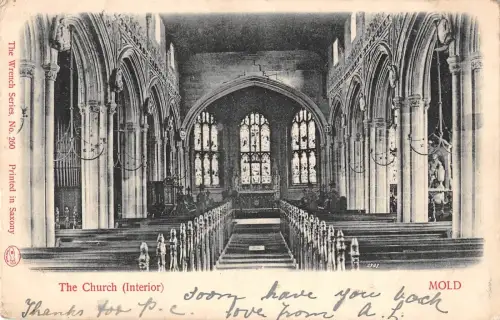 The Wrench Series, No. 260 Printed in Saxony
The Church (Interior)
MOLD
Thanks for p.c. Soon have you back
love from A.L.